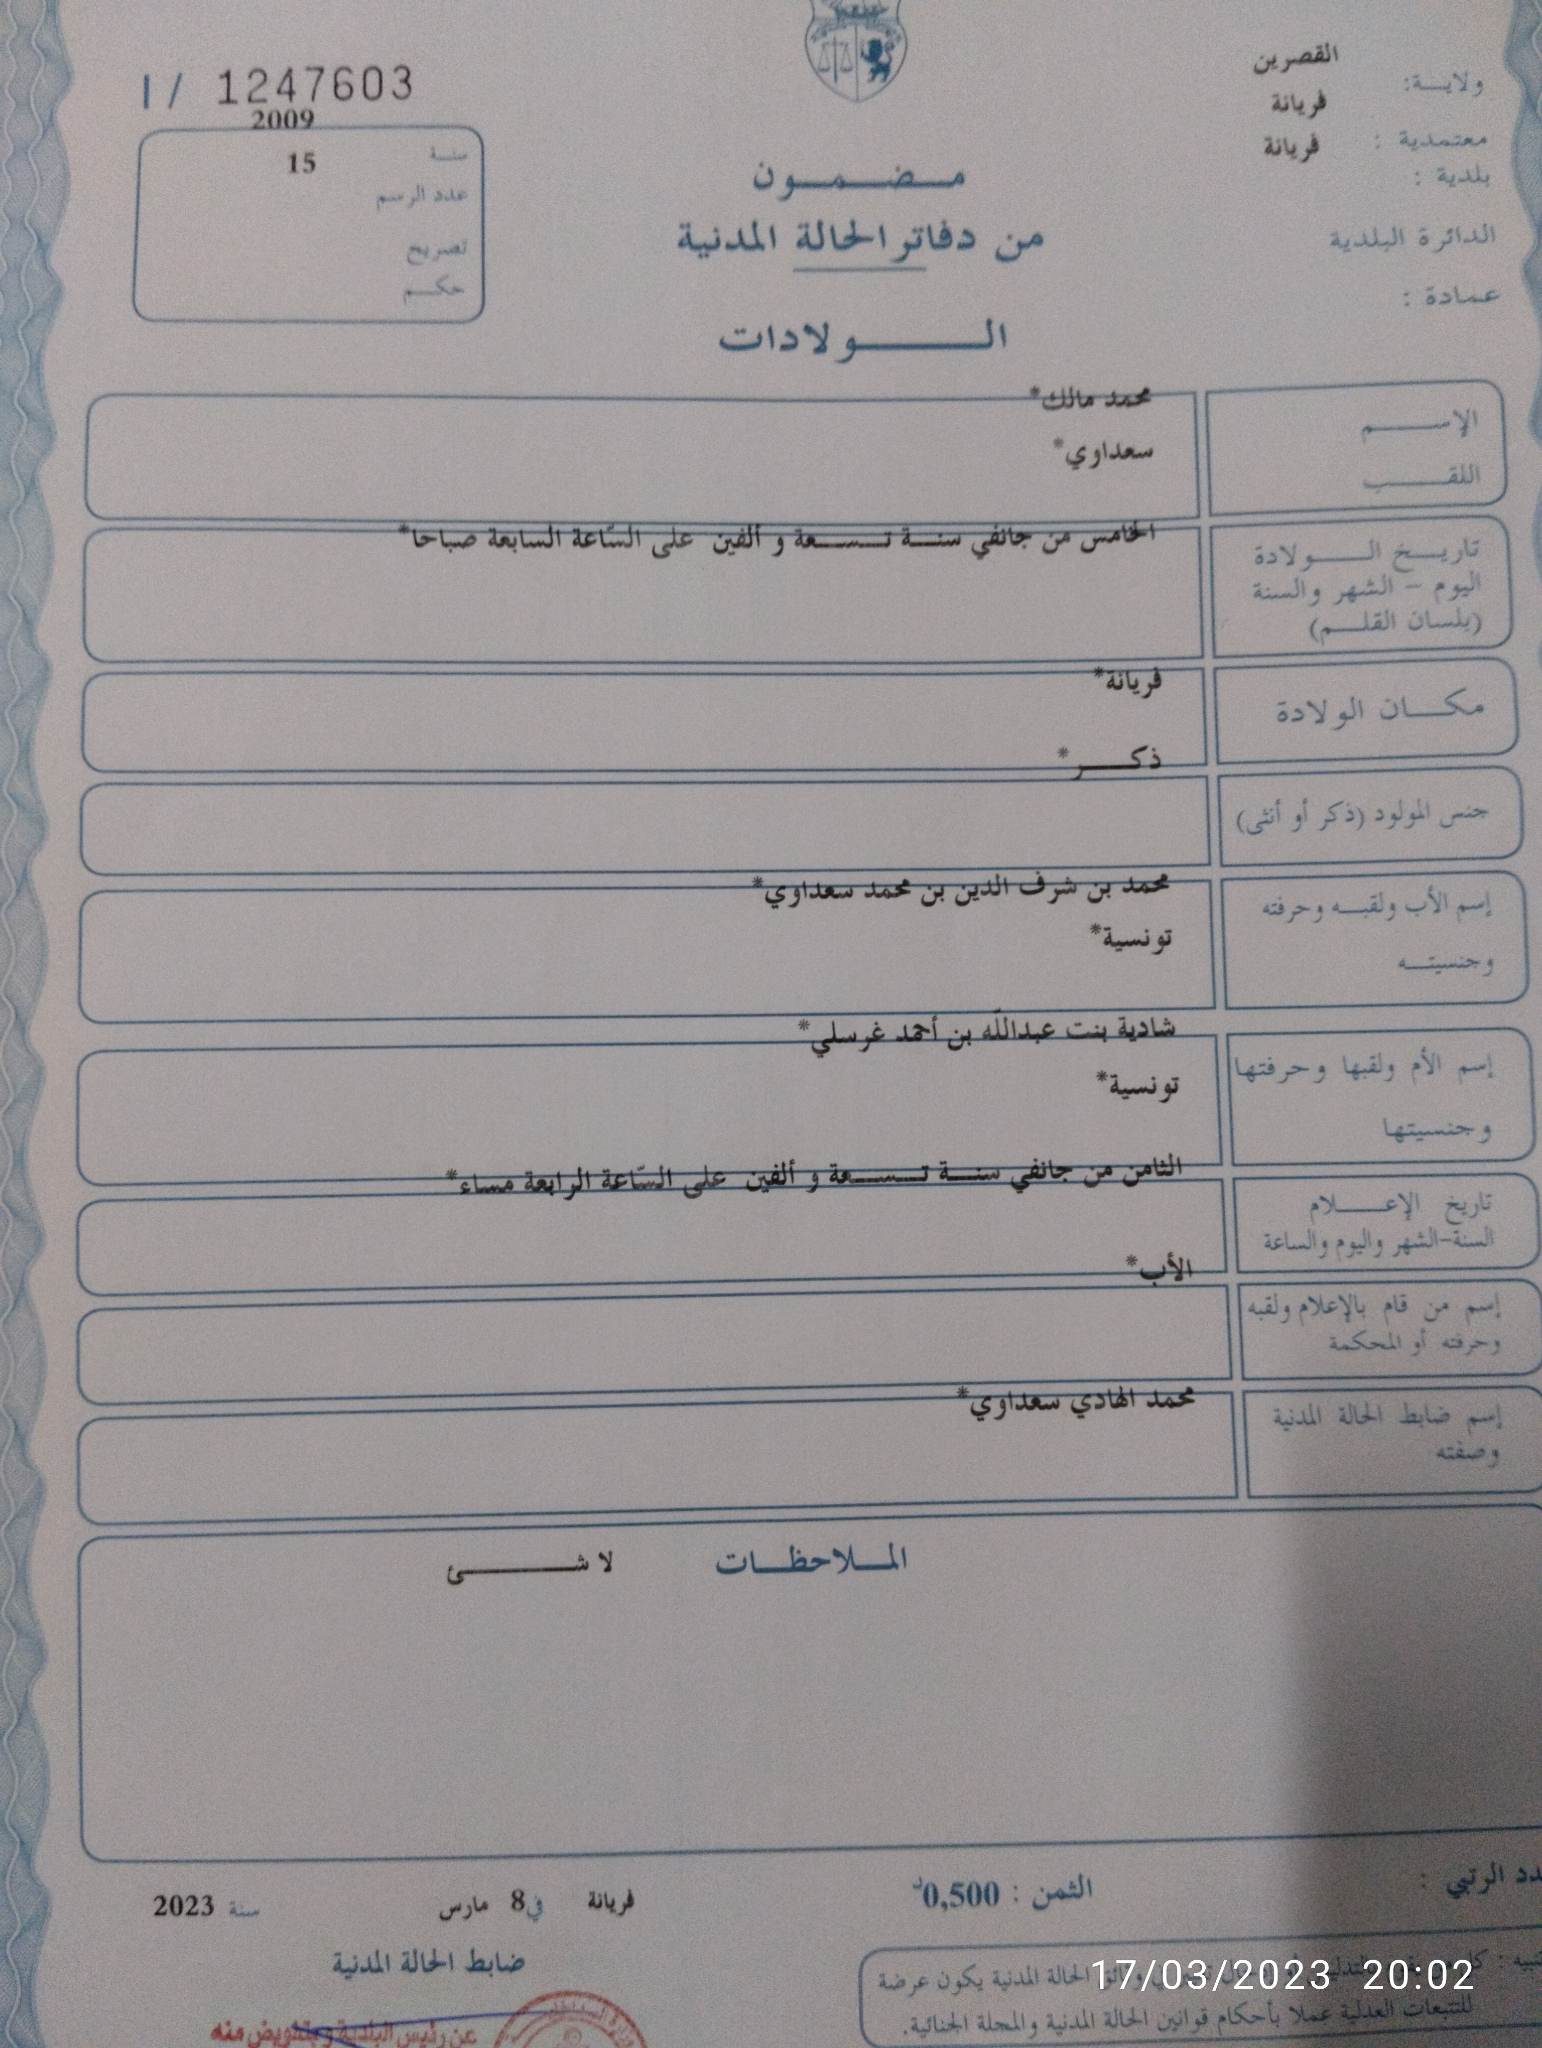 1247603 / I
2009
سنة
15
عدد الرسم
تصريح
حكم
القصرين
ولاية:
فريانة
معتمدية :
فريانة
بلدية :
الدائرة البلدية
عمادة :
مضمون
من دفاتر الحالة المدنية
الولادات
الإسم
محمد مالك*
اللقب
سعداوي*
تاريخ الولادة
اليوم - الشهر والسنة
(بلسان القلم)
الخامس من جانفي سنة تسعة و ألفين على السّاعة السابعة صباحا*
مكان الولادة
فريانة*
جنس المولود (ذكر أو أنثى)
ذكر*
إسم الأب ولقبه وحرفته
وجنسيته
محمد بن شرف الدين بن محمد سعداوي*
تونسية*
إسم الأم ولقبها وحرفتها
وجنسيتها
شادية بنت عبدالله بن أحمد غرسلي*
تونسية*
تاريخ الإعلام
السنة-الشهر واليوم والساعة
الثامن من جانفي سنة تسعة و ألفين على السّاعة الرابعة مساء*
إسم من قام بالإعلام ولقبه
وحرفته أو المحكمة
الأب*
إسم ضابط الحالة المدنية
وصفته
محمد الهادي سعداوي*
الملاحظات لا شئ
الرتبي :
الثمن : 0,500د
فريانة في 8 مارس سنة 2023
ضابط الحالة المدنية
عن رئيس البلدية وبتفويض منه
الحالة المدنية يكون عرضة
للتتبعات العدلية عملا بأحكام قوانين الحالة المدنية والمجلة الجنائية.
17/03/2023 20:02